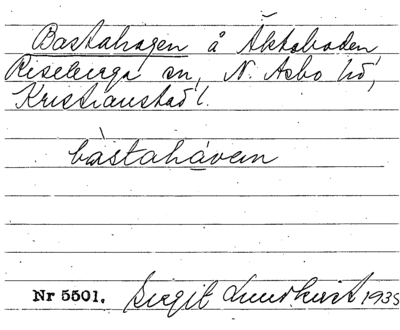 Bastahagen å Äktaboden
Riseberga sn, N. Åsbo hd,
Kristianstad l.
bàstahávein
Nr 5501. Birgit Lundkvist 1935